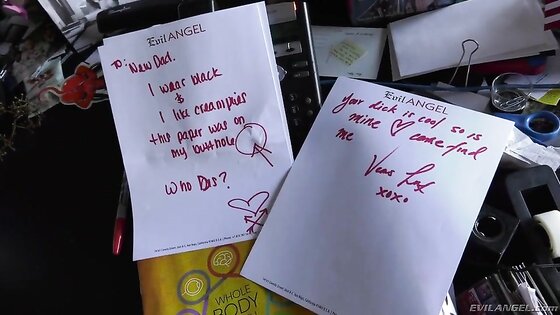 Evil ANGEL
TO: New Dad.
I wear black
&
I like creampies
this paper was on
my butthole
Who Das?
Evil ANGEL
Your dick is cool so is
mine ♡ come find
me
xoxo
WHOLE
BODY
EVILANGEL.com